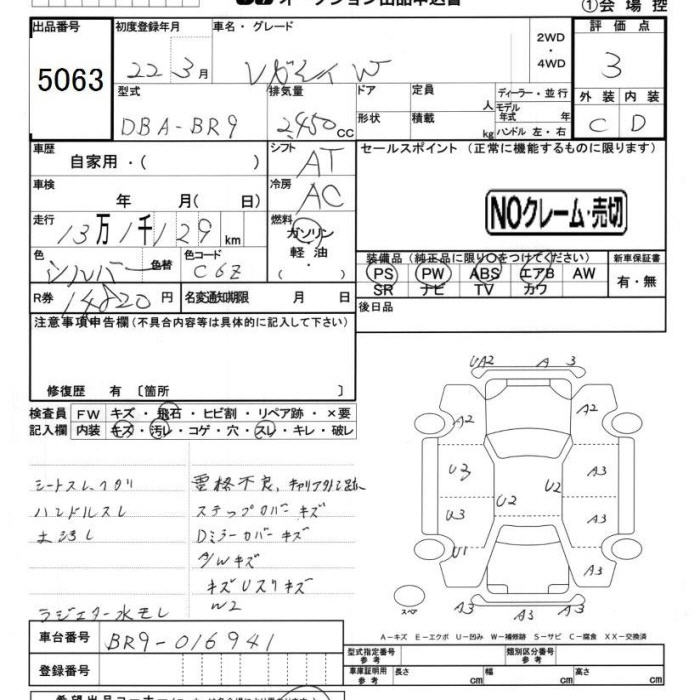 オークション出品申込書
①会場控
出品番号
5063
初度登録年月
22年3月
車名・グレード
レガシィW
2WD
・
4WD
評価点
3
外装 内装
C D
型式
DBA-BR9
排気量
2450cc
ドア
定員 人
形状
積載 kg
ディーラー・並行
モデル年式 年
ハンドル 左・右
車歴
自家用・( )
シフト
AT
車検
年 月( 日)
冷房
AC
走行
13万1千129km
燃料
ガソリン
・
軽油
( ・ )
色
シルバー
色替
色コード
C6Z
R券
14820円
名変通知期限 月 日
セールスポイント (正常に機能するものに限ります)
NOクレーム・売切
装備品 (純正品に限り○をつけてください)
PS PW ABS エアB AW
SR ナビ TV カワ
新車保証書
有・無
後日品
注意事項申告欄(不具合内容等は具体的に記入して下さい)
修復歴 有 〔箇所 〕
検査員
記入欄
FW キズ・飛石・ヒビ割・リペア跡・×要
内装 キズ・汚レ・コゲ・穴・スレ・キレ・破レ
シートスレ、ヘタリ
ハンドルスレ
ラジエター水モレ
ステップカバーキズ
Dミラーカバーキズ
A/Wキズ
キズUスリキズ
W2
UA2 A 3
A2 A2
U3 A3
U2 U2
U3 A3
U1
A3
A3 A3 A3
スペア
A―キズ E―エクボ U―凹み W―補修跡 S―サビ C―腐食 XX―交換済
車台番号
BR9-016941
登録番号
型式指定番号
参考
類別区分番号
参考
車庫証明用
参考
長さ cm
幅 cm
高さ cm